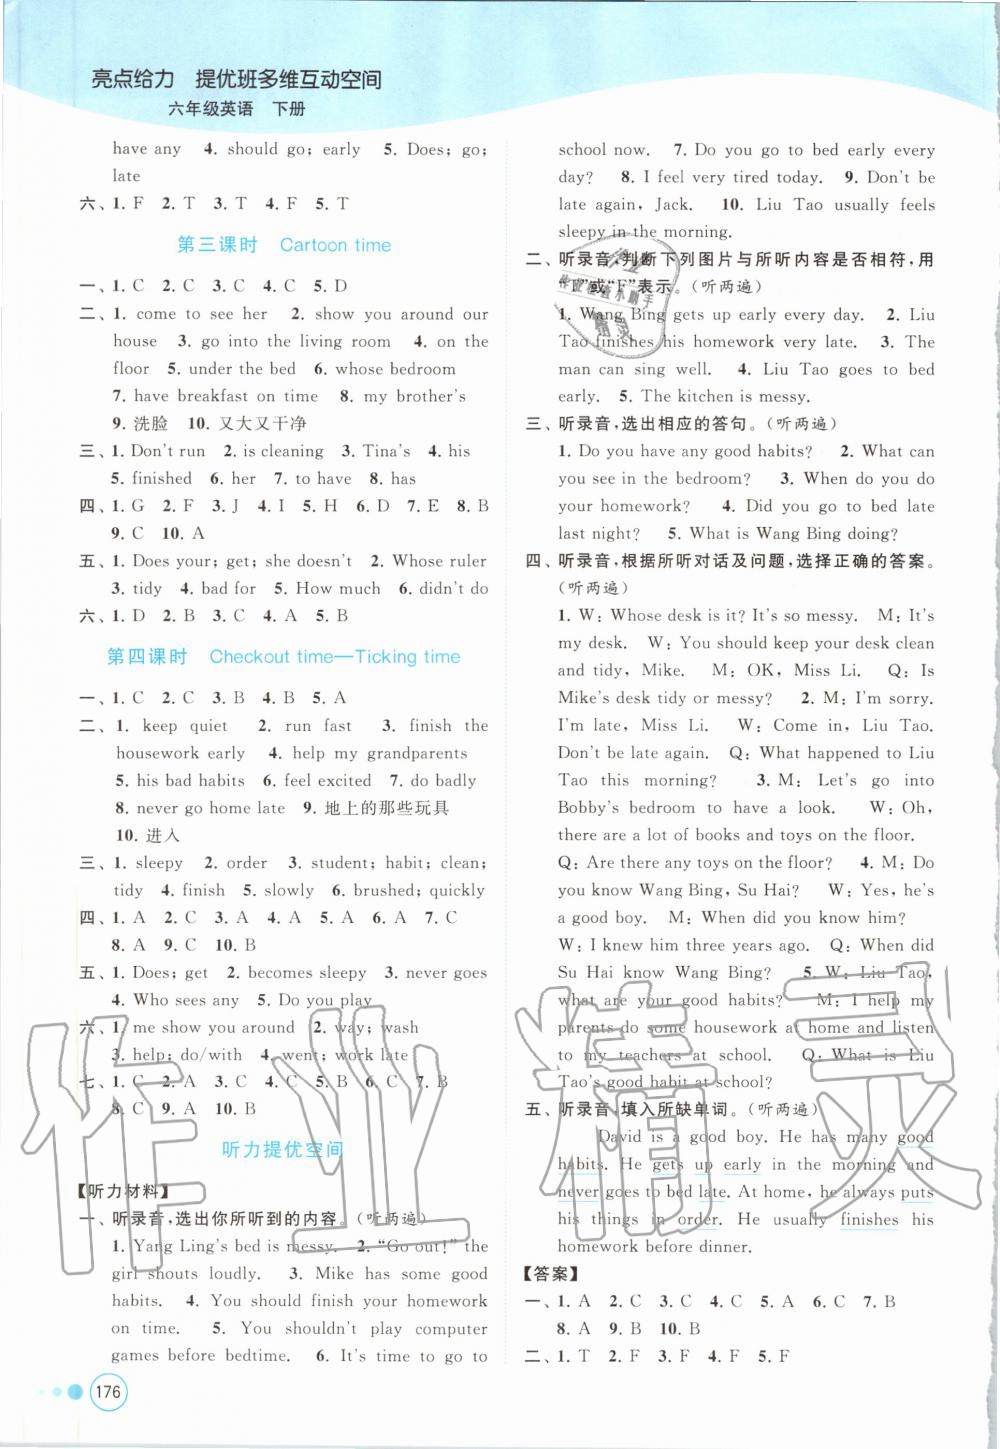 亮点给力　提优班多维互动空间
六年级英语　下册
have any　4. should go; early　5. Does; go;
late
六、1. F　2. T　3. T　4. F　5. T
第三课时　Cartoon time
一、1. C　2. C　3. C　4. C　5. D
二、1. come to see her　2. show you around our
house　3. go into the living room　4. on the
floor　5. under the bed　6. whose bedroom
7. have breakfast on time　8. my brother's
9. 洗脸　10. 又大又干净
三、1. Don't run　2. is cleaning　3. Tina's　4. his
5. finished　6. her　7. to have　8. has
四、1. G　2. F　3. J　4. I　5. H　6. D　7. E　8. B
9. C　10. A
五、1. Does your; get; she doesn't　2. Whose ruler
3. tidy　4. bad for　5. How much　6. didn't do
六、1. D　2. B　3. C　4. A　5. B
第四课时　Checkout time—Ticking time
一、1. C　2. C　3. B　4. B　5. A
二、1. keep quiet　2. run fast　3. finish the
housework early　4. help my grandparents
5. his bad habits　6. feel excited　7. do badly
8. never go home late　9. 地上的那些玩具
10. 进入
三、1. sleepy　2. order　3. student; habit; clean;
tidy　4. finish　5. slowly　6. brushed; quickly
四、1. A　2. C　3. A　4. A　5. A　6. A　7. C
8. A　9. C　10. B
五、1. Does; get　2. becomes sleepy　3. never goes
4. Who sees any　5. Do you play
六、1. me show you around　2. way; wash
3. help; do/with　4. went; work late
七、1. C　2. A　3. C　4. C　5. B　6. C　7. B
8. C　9. A　10. B
听力提优空间
【听力材料】
一、听录音,选出你所听到的内容。（听两遍）
1. Yang Ling's bed is messy.　2. "Go out!" the
girl shouts loudly.　3. Mike has some good
habits.　4. You should finish your homework
on time.　5. You shouldn't play computer
games before bedtime.　6. It's time to go to
school now.　7. Do you go to bed early every
day?　8. I feel very tired today.　9. Don't be
late again, Jack.　10. Liu Tao usually feels
sleepy in the morning.
二、听录音,判断下列图片与所听内容是否相符,用
“T”或“F”表示。（听两遍）
1. Wang Bing gets up early every day.　2. Liu
Tao finishes his homework very late.　3. The
man can sing well.　4. Liu Tao goes to bed
early.　5. The kitchen is messy.
三、听录音,选出相应的答句。（听两遍）
1. Do you have any good habits?　2. What can
you see in the bedroom?　3. When do you do
your homework?　4. Did you go to bed late
last night?　5. What is Wang Bing doing?
四、听录音,根据所听对话及问题,选择正确的答案。
（听两遍）
1. W: Whose desk is it? It's so messy.　M: It's
my desk.　W: You should keep your desk clean
and tidy, Mike.　M: OK, Miss Li.　Q: Is
Mike's desk tidy or messy?　2. M: I'm sorry.
I'm late, Miss Li.　W: Come in, Liu Tao.
Don't be late again.　Q: What happened to Liu
Tao this morning?　3. M: Let's go into
Bobby's bedroom to have a look.　W: Oh,
there are a lot of books and toys on the floor.
Q: Are there any toys on the floor?　4. M: Do
you know Wang Bing, Su Hai?　W: Yes, he's
a good boy.　M: When did you know him?
W: I knew him three years ago.　Q: When did
Su Hai know Wang Bing?　5. W: Liu Tao,
what are your good habits?　M: I help my
parents do some housework at home and listen
to my teachers at school.　Q: What is Liu
Tao's good habit at school?
五、听录音,填入所缺单词。（听两遍）
David is a good boy. He has many good
habits. He gets up early in the morning and
never goes to bed late. At home, he always puts
his things in order. He usually finishes his
homework before dinner.
【答案】
一、1. A　2. C　3. C　4. C　5. A　6. C　7. B
8. A　9. B　10. B
二、1. T　2. F　3. T　4. F　5. F
176
作业精灵